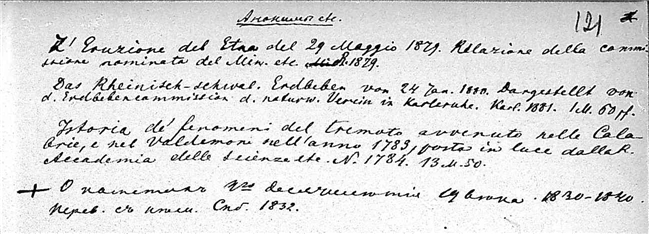 Анонимы etc.
121
L'Eruzione del Etna del 29 Maggio 1879. Relazione della commis-
sione nominata del Min. etc. 1879.
Das Rheinisch-schwäb. Erdbeben von 24 Jan. 1880. Dargestellt von
d. Erdbebencommission d. naturw. Verein in Karlsruhe. Karl. 1881. 1 M. 60 pf.
Istoria de' fenomeni del tremoto avvenuto nelle Cala-
brie, e nel Valdemone nell'anno 1783, posta in luce dalla R.
Accademia delle Scienze etc. N. 1784. 13 M. 50.
+ О 1830-1840
Перев. съ нѣм. Спб. 1832.